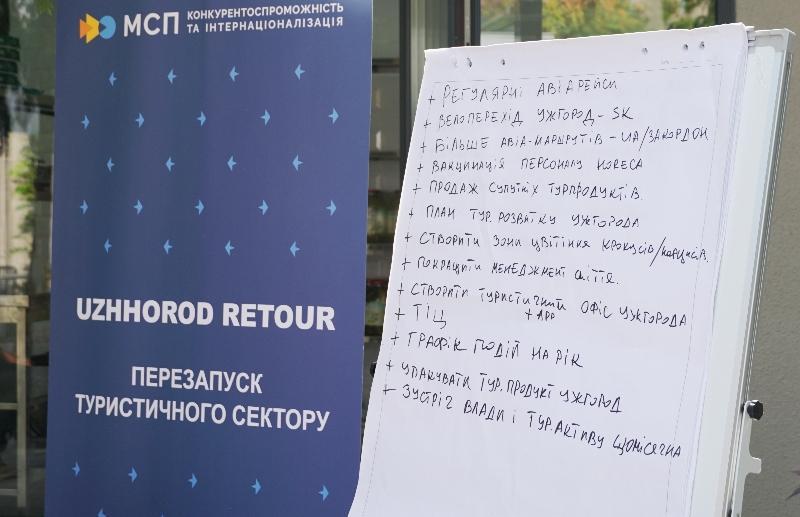 МСП КОНКУРЕНТОСПРОМОЖНІСТЬ
ТА ІНТЕРНАЦІОНАЛІЗАЦІЯ
UZHHOROD RETOUR
ПЕРЕЗАПУСК
ТУРИСТИЧНОГО СЕКТОРУ
+ РЕГУЛЯРНІ АВІАРЕЙСИ
+ ВЕЛОПЕРЕХІД УЖГОРОД - SK
+ БІЛЬШЕ АВІА-МАРШРУТІВ - UA/ЗАКОРДОН
+ ВАКЦИНАЦІЯ ПЕРСОНАЛУ HORECA
+ ПРОДАЖ СУПУТНІХ ТУРПРОДУКТІВ.
+ ПЛАН ТУР. РОЗВАТКУ УЖГОРОДА
+ СТВОРИТИ ЗОНИ ЦВІТІННЯ КРОКУСІВ/НАРЦИСІВ.
+ ПОКРАЩИТИ МЕНЕДЖМЕНТ СМІТТЯ.
+ СТВОРИТИ ТУРИСТИЧНИЙ ОФІС УЖГОРОДА
+ ТІЦ + APP
+ ГРАФІК ПОДІЙ НА РІК
+ УПАКУВАТИ ТУР. ПРОДУКТ УЖГОРОД
+ ЗУСТРІЧ ВЛАДИ І ТУР.АКТИВУ ЩОМІСЯЧНА